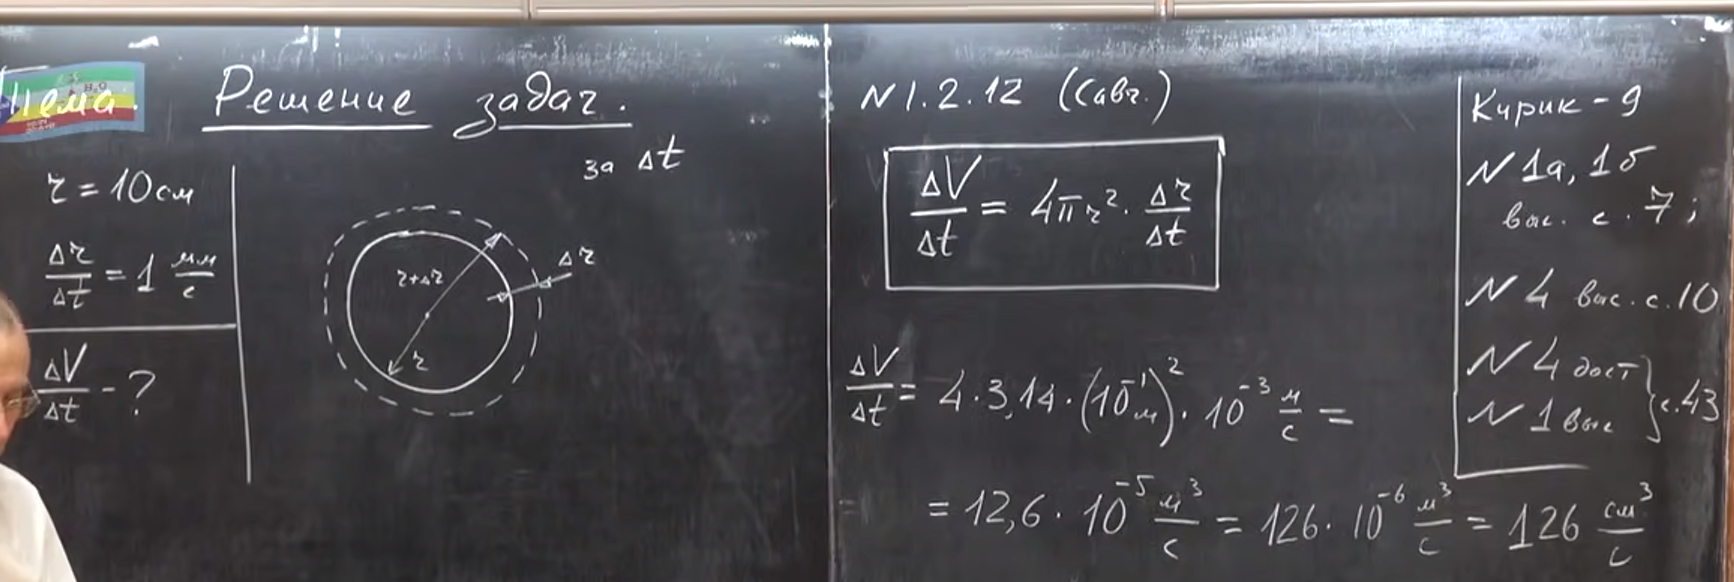 Тема. Решение задач.
r = 10 см
Δr/Δt = 1 мм/с
ΔV/Δt - ?
за Δt
r+Δr
Δr
r
N 1.2.12 (Савч.)
ΔV/Δt = 4πr² · Δr/Δt
ΔV/Δt = 4 · 3,14 · (10⁻¹м)² · 10⁻³ м/с =
= 12,6 · 10⁻⁵ м³/с = 126 · 10⁻⁶ м³/с = 126 см³/с
Кирик - 9
N 1а, 1б
выс. с. 7;
N 4 выс. с. 10
N 4 дост
N 1 выс } с. 43